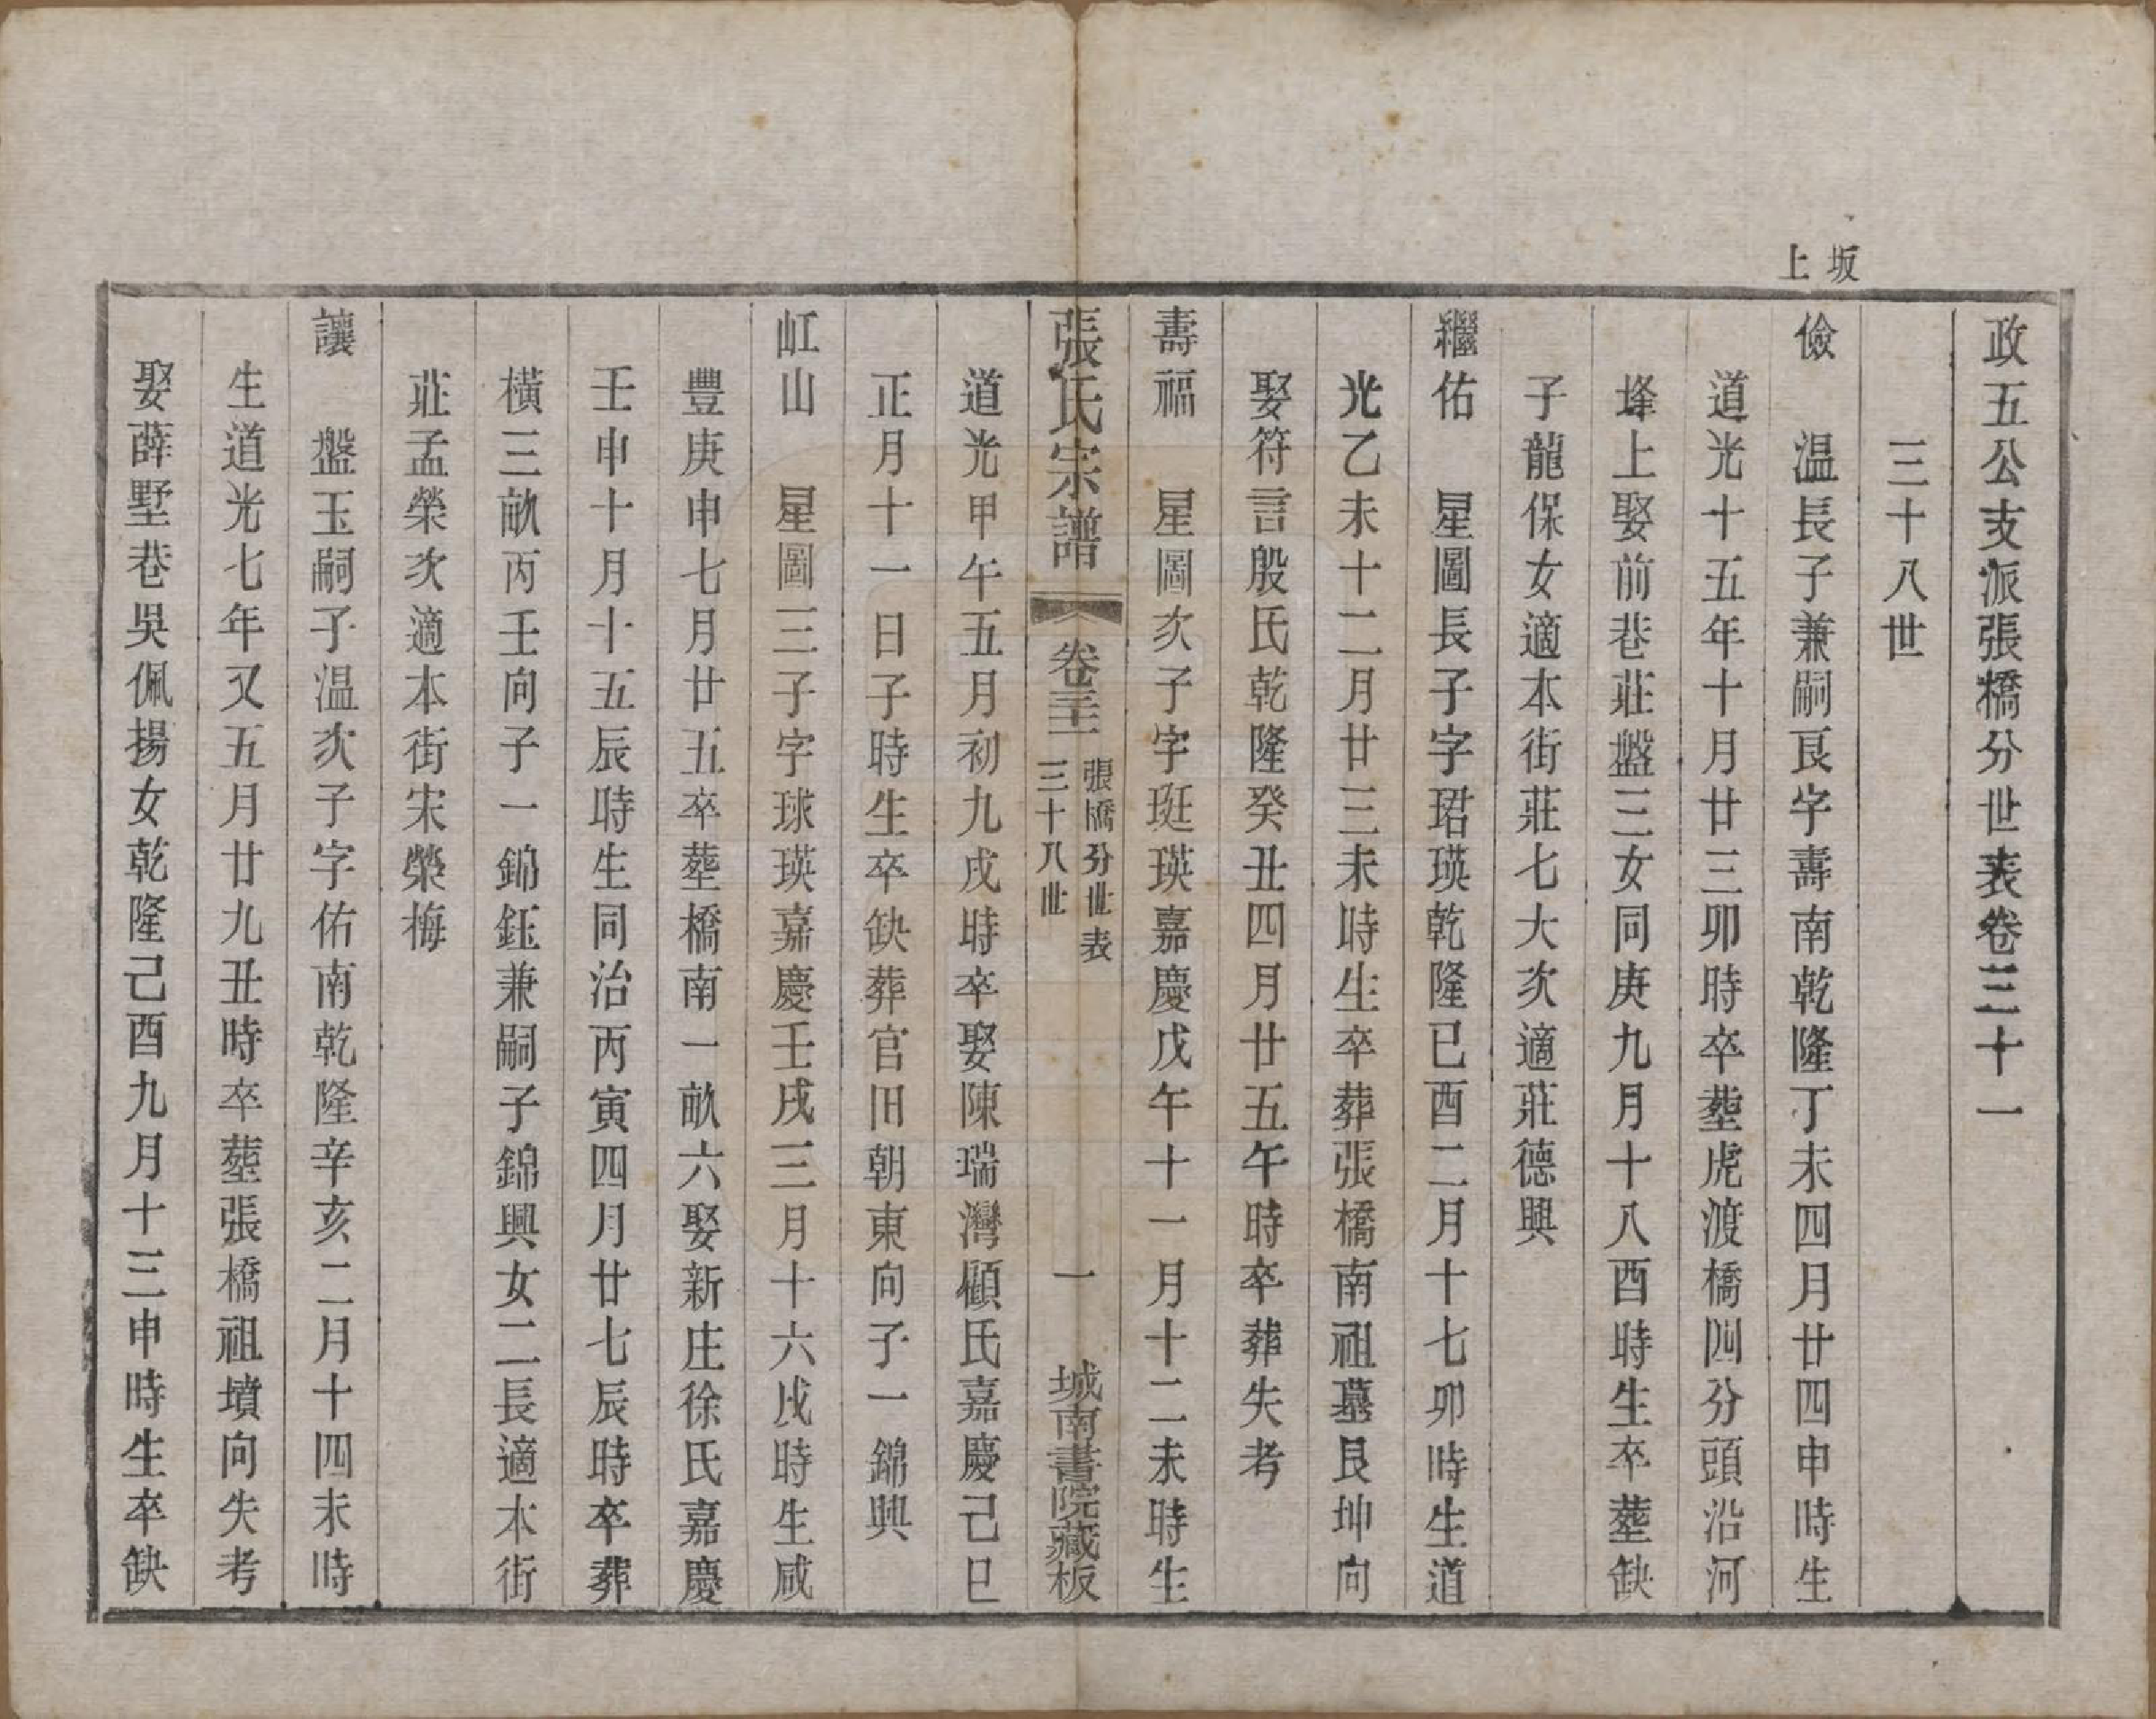 坂上
政五公支派張橋分世表卷三十一
三十八世
儉　温長子兼嗣良字壽南乾隆丁未四月廿四申時生
道光十五年十月廿三卯時卒塟虎渡橋四分頭沿河
埄上娶前巷莊盤三女同庚九月十八酉時生卒塟缺
子龍保女適本街莊七大次適莊德興
繼佑　星圖長子字珺瑛乾隆已酉二月十七卯時生道
光乙未十二月廿三未時生卒葬張橋南祖墓艮坤向
娶符言殷氏乾隆癸丑四月廿五午時卒葬失考
壽福　星圖次子字珽瑛嘉慶戊午十一月十二未時生
張氏宗譜　卷三十一　張橋分世表　三十八世　一　城南書院藏板
道光甲午五月初九戌時卒娶陳瑞灣顧氏嘉慶己巳
正月十一日子時生卒缺葬官田朝東向子一錦興
虹山　星圖三子字球瑛嘉慶壬戌三月十六戌時生咸
豐庚申七月廿五卒塟橋南一畝六娶新庄徐氏嘉慶
壬申十月十五辰時生同治丙寅四月廿七辰時卒葬
橫三畝丙壬向子一錦鈺兼嗣子錦興女二長適本街
莊孟榮次適本街宋榮梅
讓　盤玉嗣子温次子字佑南乾隆辛亥二月十四未時
生道光七年又五月廿九丑時卒塟張橋祖墳向失考
娶薛墅巷吳佩揚女乾隆己酉九月十三申時生卒缺